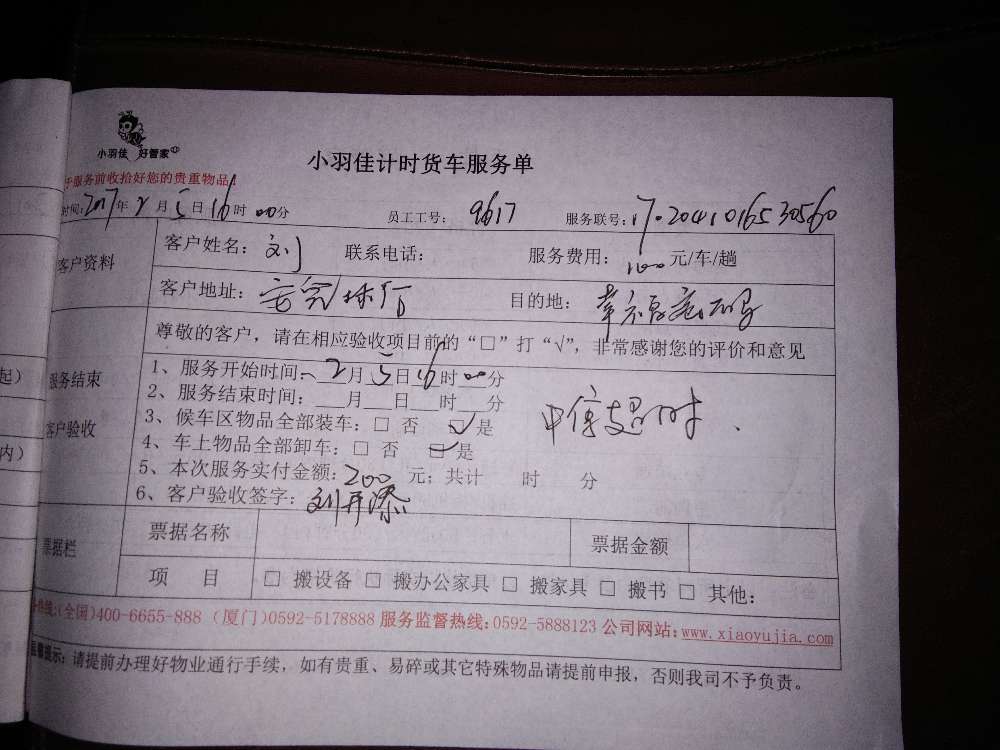 小羽佳 好管家
小羽佳计时货车服务单
于服务前收拾好您的贵重物品!
时间:2017年2月5日16时00分 员工工号: 9617 服务联号:17-2041016530560
客户资料
客户姓名: 刘 联系电话: 服务费用: 100元/车/趟
客户地址: 目的地: 幸福
尊敬的客户，请在相应验收项目前的“□”打“√”，非常感谢您的评价和意见
服务结束
客户验收
1、服务开始时间: 2月5日16时00分
2、服务结束时间: 月 日 时 分
3、候车区物品全部装车: □ 否 ☑是
4、车上物品全部卸车: □ 否 ☑是
5、本次服务实付金额: 200 元; 共计 时 分
6、客户验收签字: 刘开添
超时
票据栏
票据名称 票据金额
项 目 □ 搬设备 □ 搬办公家具 □ 搬家具 □ 搬书 □ 其他:
热线:(全国)400-6655-888 (厦门)0592-5178888 服务监督热线:0592-5888123 公司网站:www.xiaoyujia.com
提示: 请提前办理好物业通行手续，如有贵重、易碎或其它特殊物品请提前申报，否则我司不予负责。
起)
内)